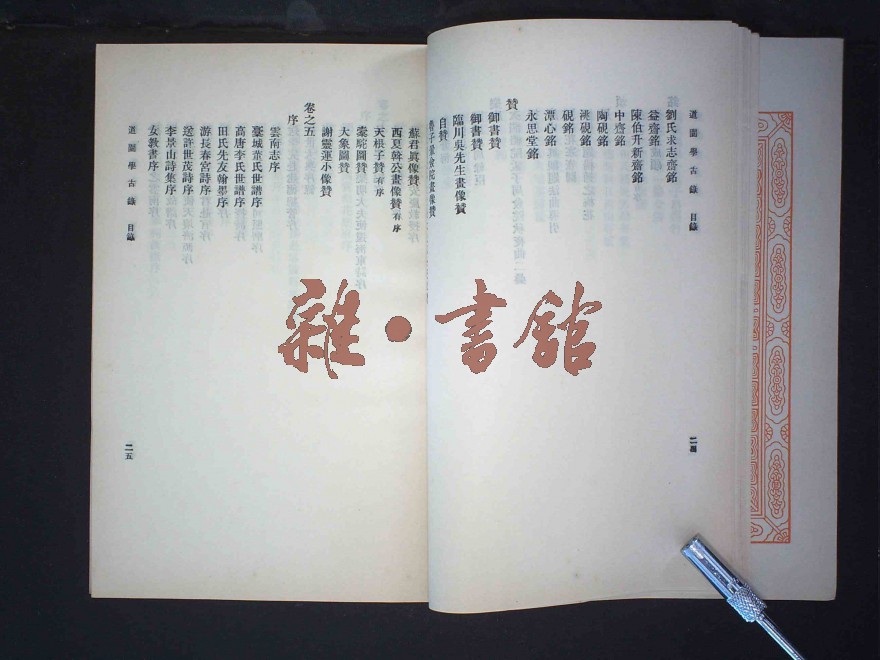 道園學古錄 目錄
劉氏求志齋銘
益齋銘
陳伯升新齋銘
中齋銘
陶硯銘
洮硯銘
硯銘
潭心銘
永思堂銘
贊
御書贊
御書贊
臨川吳先生畫像贊
自贊
畫像贊
二四
蘇君眞像贊
西夏斡公畫像贊有序
天根子贊有序
橐駝圖贊
大象圖贊
謝靈運小像贊
卷之五
序
雲南志序
藁城董氏世譜序
高唐李氏世譜序
田氏先友翰墨序
游長春宮詩序
送許世茂詩序
李景山詩集序
女教書序
道園學古錄 目錄
二五
雜•書館